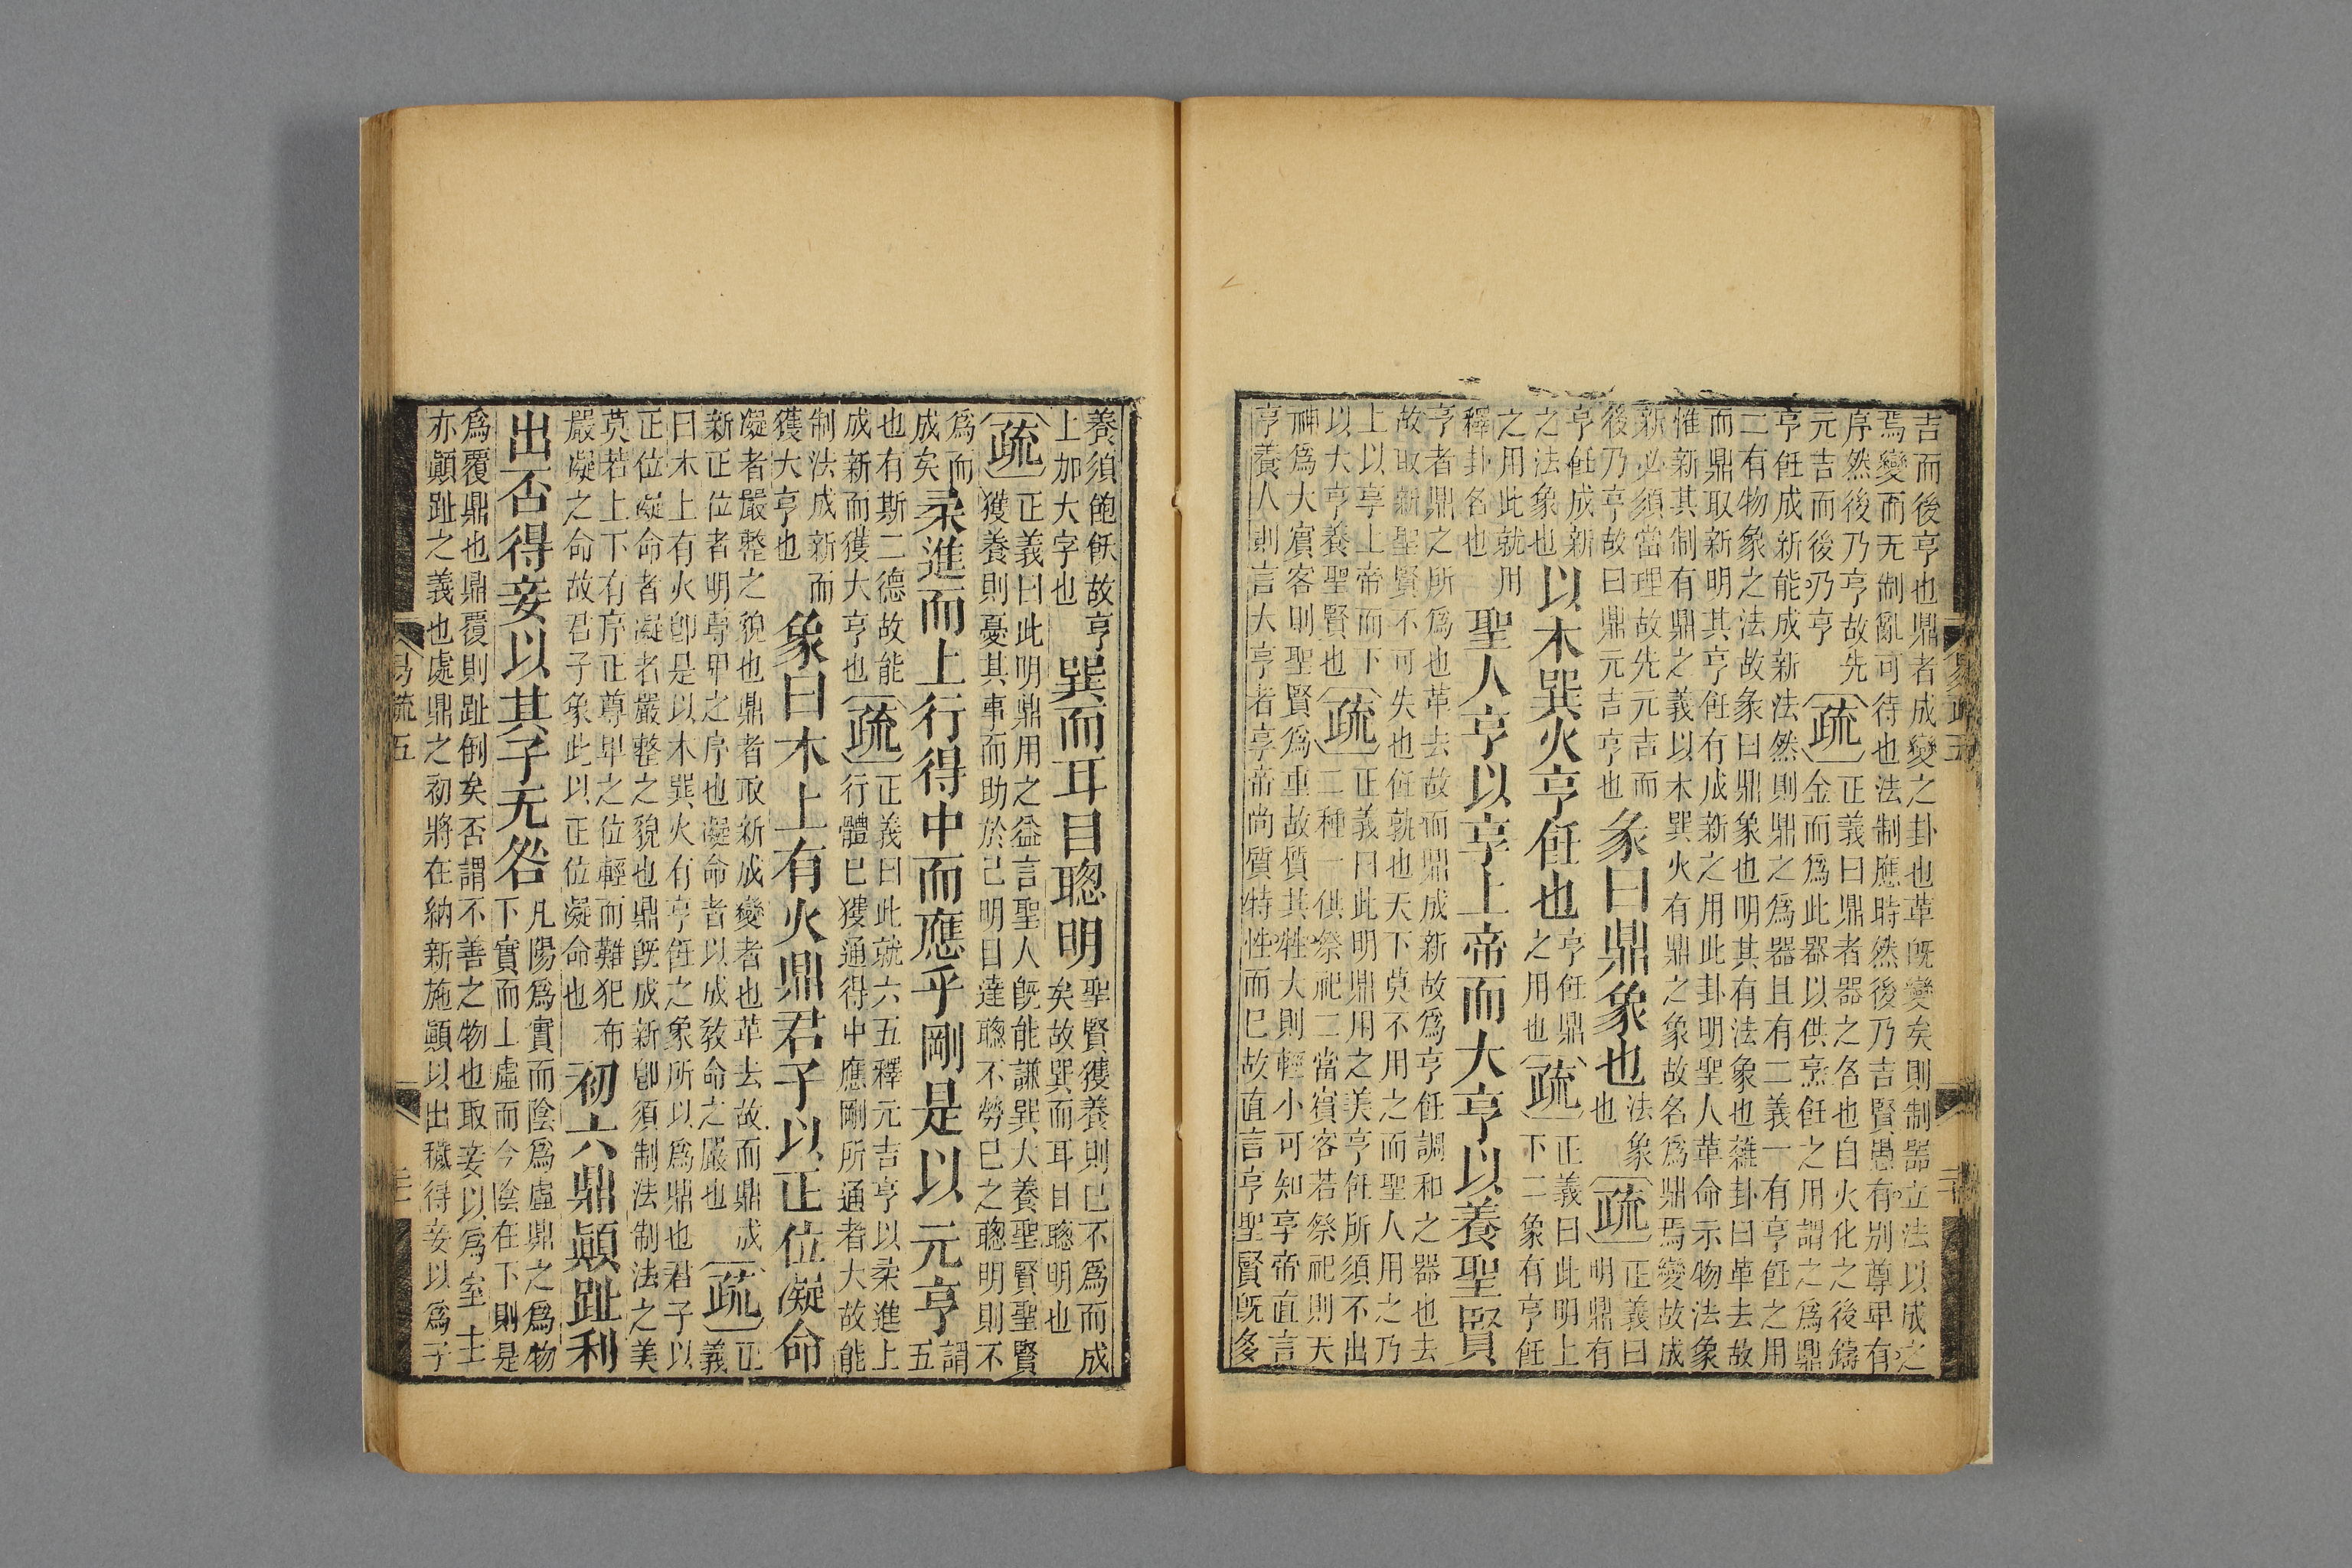 吉而後亨也鼎者成變之卦也革旣變矣則制器立法以成之
焉變而无制亂可待也法制應時然後乃吉賢愚有別尊卑有
序然後乃亨故先
元吉而後乃亨
疏
正義曰鼎者器之名也自火化之後鑄
金而爲此器以供烹飪之用謂之爲鼎
亨飪成新能成新法然則鼎之爲器且有二義一有亨飪之用
二有物象之法故象曰鼎象也明其有法象也雜卦曰革去故
而鼎取新明其亨飪有成新之用此卦明聖人革命示物法象
惟新其制有鼎之義以木巽火有鼎之象故名爲鼎焉變故成
新必須當理故先元吉而
後乃亨故曰鼎元吉亨也
彖曰鼎象也
法象
也
疏
正義曰
明鼎有
亨飪成新
之法象也
以木巽火亨飪也
亨飪鼎
之用也
疏
正義曰此明上
下二象有亨飪
之用此就用
釋卦名也
聖人亨以享上帝而大亨以養聖賢
亨者鼎之所爲也革去故而鼎成新故爲亨飪調和之器也去
故取新聖賢不可失也飪孰也天下莫不用之而聖人用之乃
上以享上帝而下
以大亨養聖賢也
疏
正義曰此明鼎用之美亨飪所須不出
二種一供祭祀二當賓客若祭祀則天
神爲大賓客則聖賢爲重故質其牲大則輕小可知享帝直言
亨養人則言大亨者享帝尚質特性而巳故直言亨聖賢旣多
養須飽飫故亨
上加大字也
巽而耳目聰明
聖賢獲養則己不爲而成
矣故巽而耳目聰明也
疏
正義曰此明鼎用之益言聖人旣能謙巽大養聖賢聖賢
獲養則憂其事而助於己明目達聰不勞己之聰明則不
爲而
成矣
柔進而上行得中而應乎剛是以元亨
謂
五
也有斯二德故能
成新而獲大亨也
疏
正義曰此就六五釋元吉亨以柔進上
行體巳獲通得中應剛所通者大故能
制法成新而
獲大亨也
象曰木上有火鼎君子以正位凝命
凝者嚴整之貌也鼎者取新成變者也革去故而鼎成
新正位者明尊卑之序也凝命者以成敎命之嚴也
疏
正
義
曰木上有火卽是以木巽火有亨飪之象所以爲鼎也君子以
正位凝命者凝者嚴整之貌也鼎旣成新卽須制法制法之美
莫若上下有序正尊卑之位輕而難犯布
嚴凝之命故君子象此以正位凝命也
初六鼎顚趾利
出否得妾以其子无咎
凡陽爲實而陰爲虛鼎之爲物
下實而上虛而今陰在下則是
爲覆鼎也鼎覆則趾倒矣否謂不善之物也取妾以爲室主
亦顚趾之義也處鼎之初將在納新施顚以出穢得妾以爲子